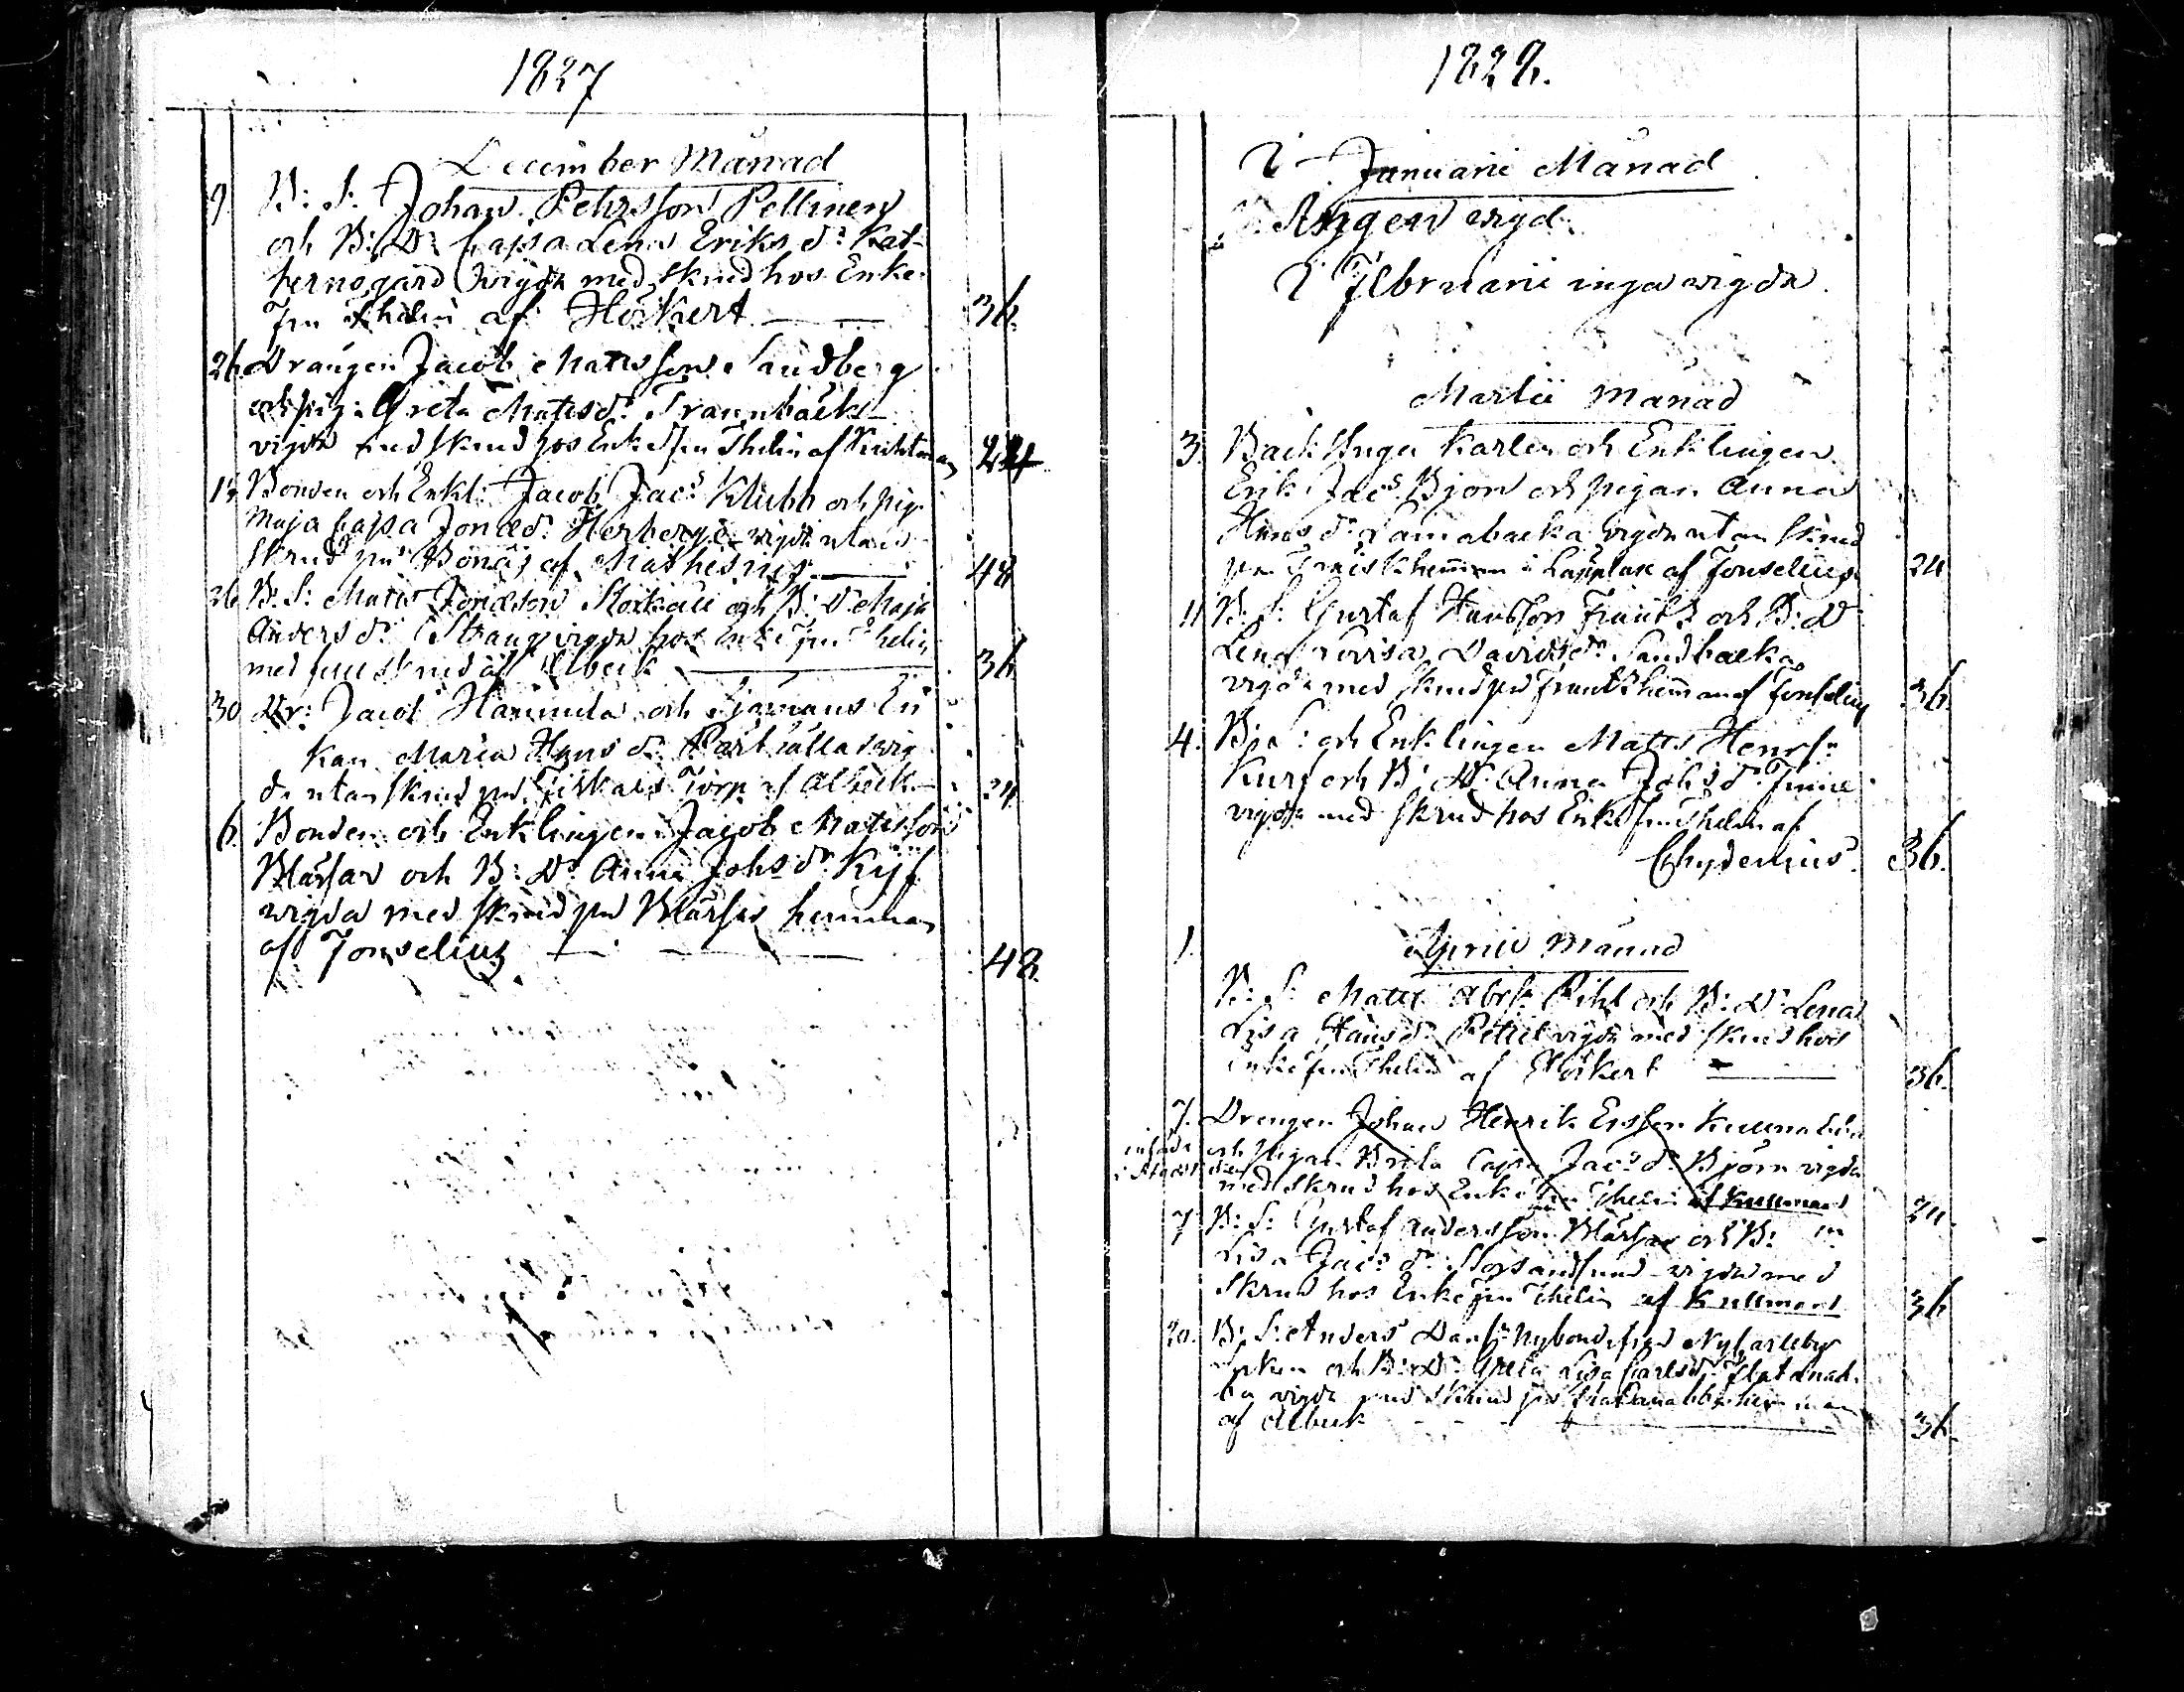 1827
December Månad
9. B: S: Johan Pehrsson Pellinen
och B: D: Cajsa Lena Eriks dr Kat-
ternogård wigda med skrud hos Enke
Fru Thelin af Höckert 36.
26. Drängen Jacob Mattsson Sandberg
och pig: Greta Matts dr Trannback
vigda med skrud hos Enkefru Thelin af 24
Bonden och Enkl: Jacob Jacs Klubb och pig.
Maja Cajsa Jonæ dr Herberge wigda utan
skrud på Bonäs af Mathesius 48
26 B: S: Matts Jonæson och B: D: Maja
Anders dr Strang vigda hos Enke Fru Thelin
med full skrud af Albeck 36
30 Dr: Jacob Hannula och Sjömans En
kan Maria Hans dr wig
da utan skrud på Torp af Albeck 24
6. Bonden och Enklingen Jacob Mattsson
Blårfar och B: D: Anna Johs dr Kijf
wigda med skrud på Blårfar hemman
af Fonselius 48.
1828.
I Januarii Månad
Ingen wigd.
I Februarii inga wigda.
Martii Månad
3. Back Inga Karlen och Enklingen
Erik Jacs Björn och pigan Anna
Hans dr Lamabacka vigda utan skrud
på hemman i Lappfax af Fonselius 24
11 B: S: Gustaf Hansson Frants och B: D
Lena Lovisa Davids dr Sandbacka
vigda med skrud på Frants hemman af Fonselius 36.
4. B: S: och Enklingen Matts Henrs
Kurf och B: D: Anna Johs dr
vigda med skrud hos Enke Fru Thelin af
Chydenius. 36.
1. Aprill Månad
B: S: Matts Abrs Pihl och B: D: Lena
Lisa Hans dr Pettil vigda med skrud hos
Enkefru Thelin af Höckert 36.
7. Drengen Johan Henrik Ersson
införd och pigan Brita Cajsa Jacs dr Björn vigda
med skrud hos Enkefru Thelin af Kullman 24.
7 B: S: Gustaf Andersson Blårfar och B:
Lisa Jacs dr Storsandsund vigda med
skrud hos Enkefru Thelin af Kullman 36
20. B: S: Anders Dans Nybond från NyCarleby
Soken och B: D: Greta Lisa Carls dr Flatanab
ba vigda med skrud på Flatanabba hemman
af Albeck 36.